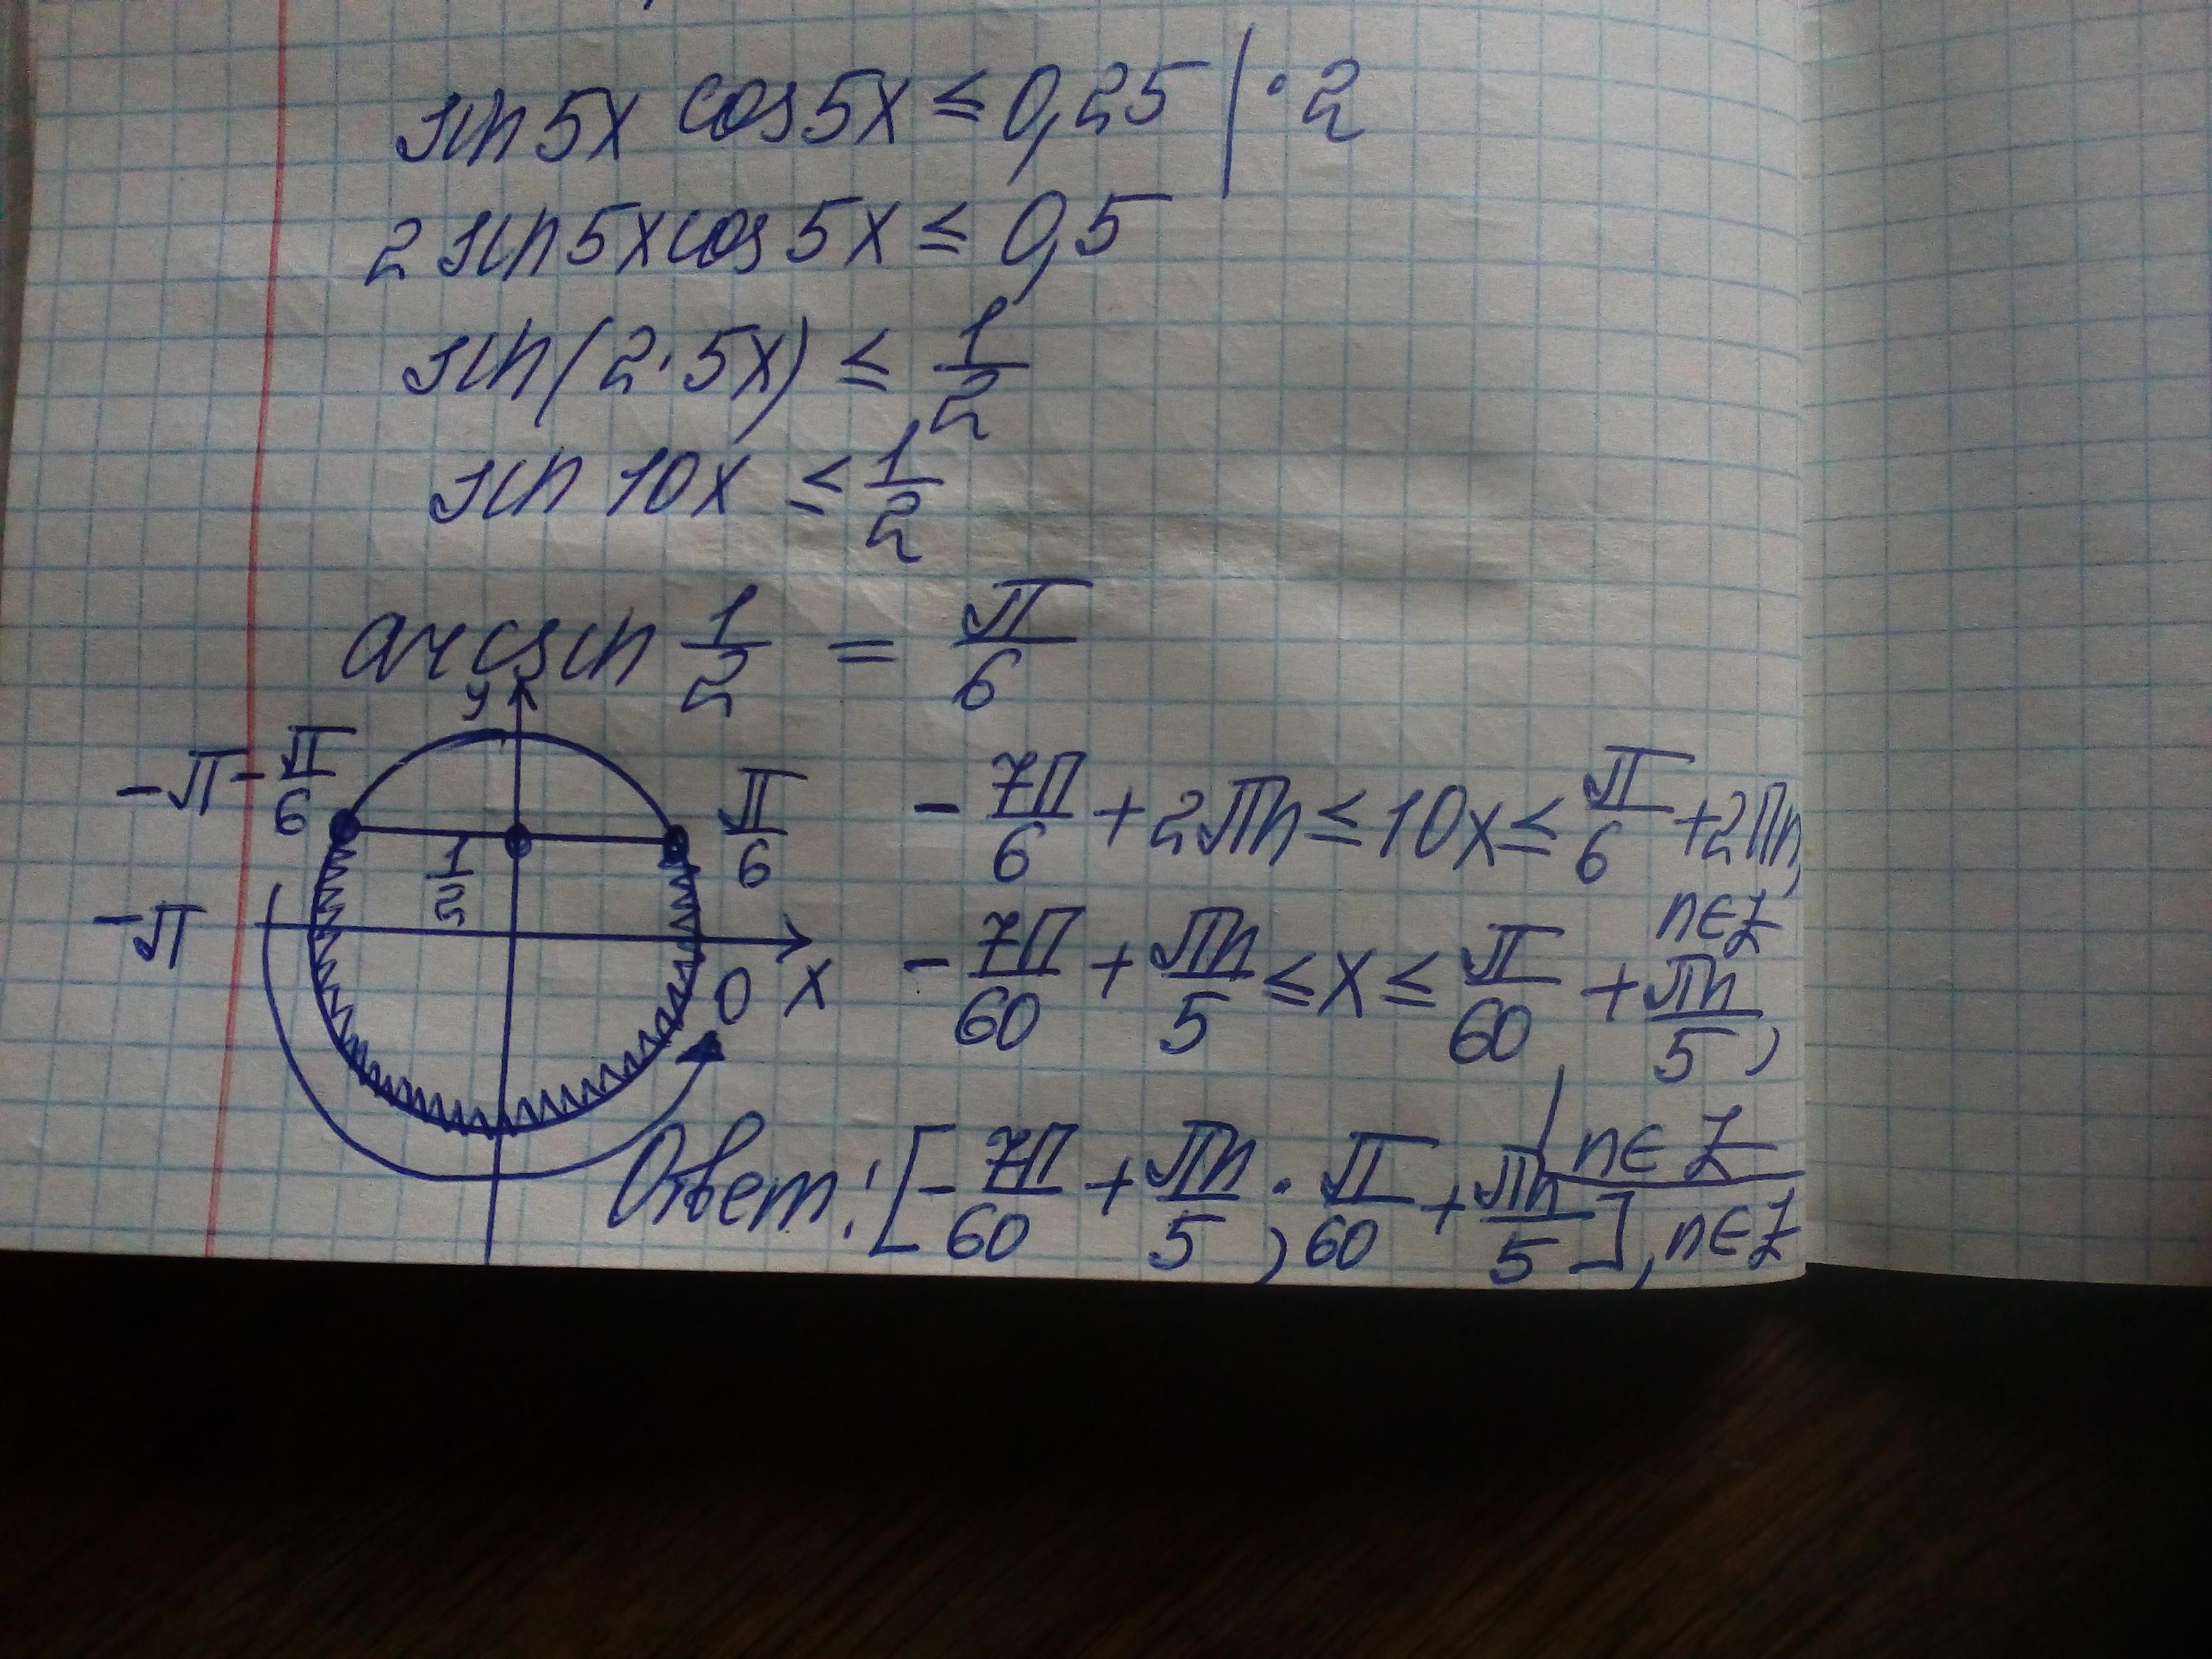 sin 5x cos 5x ≤ 0,25 | · 2
2 sin 5x cos 5x ≤ 0,5
sin(2·5x) ≤ 1/2
sin 10x ≤ 1/2
arcsin 1/2 = π/6
y
-π - π/6
π/6
1/2
-π
0 x
-7π/6 + 2πn ≤ 10x ≤ π/6 + 2πn,
n∈Z
-7π/60 + πn/5 ≤ x ≤ π/60 + πn/5,
n∈Z
Ответ: [-7π/60 + πn/5; π/60 + πn/5], n∈Z